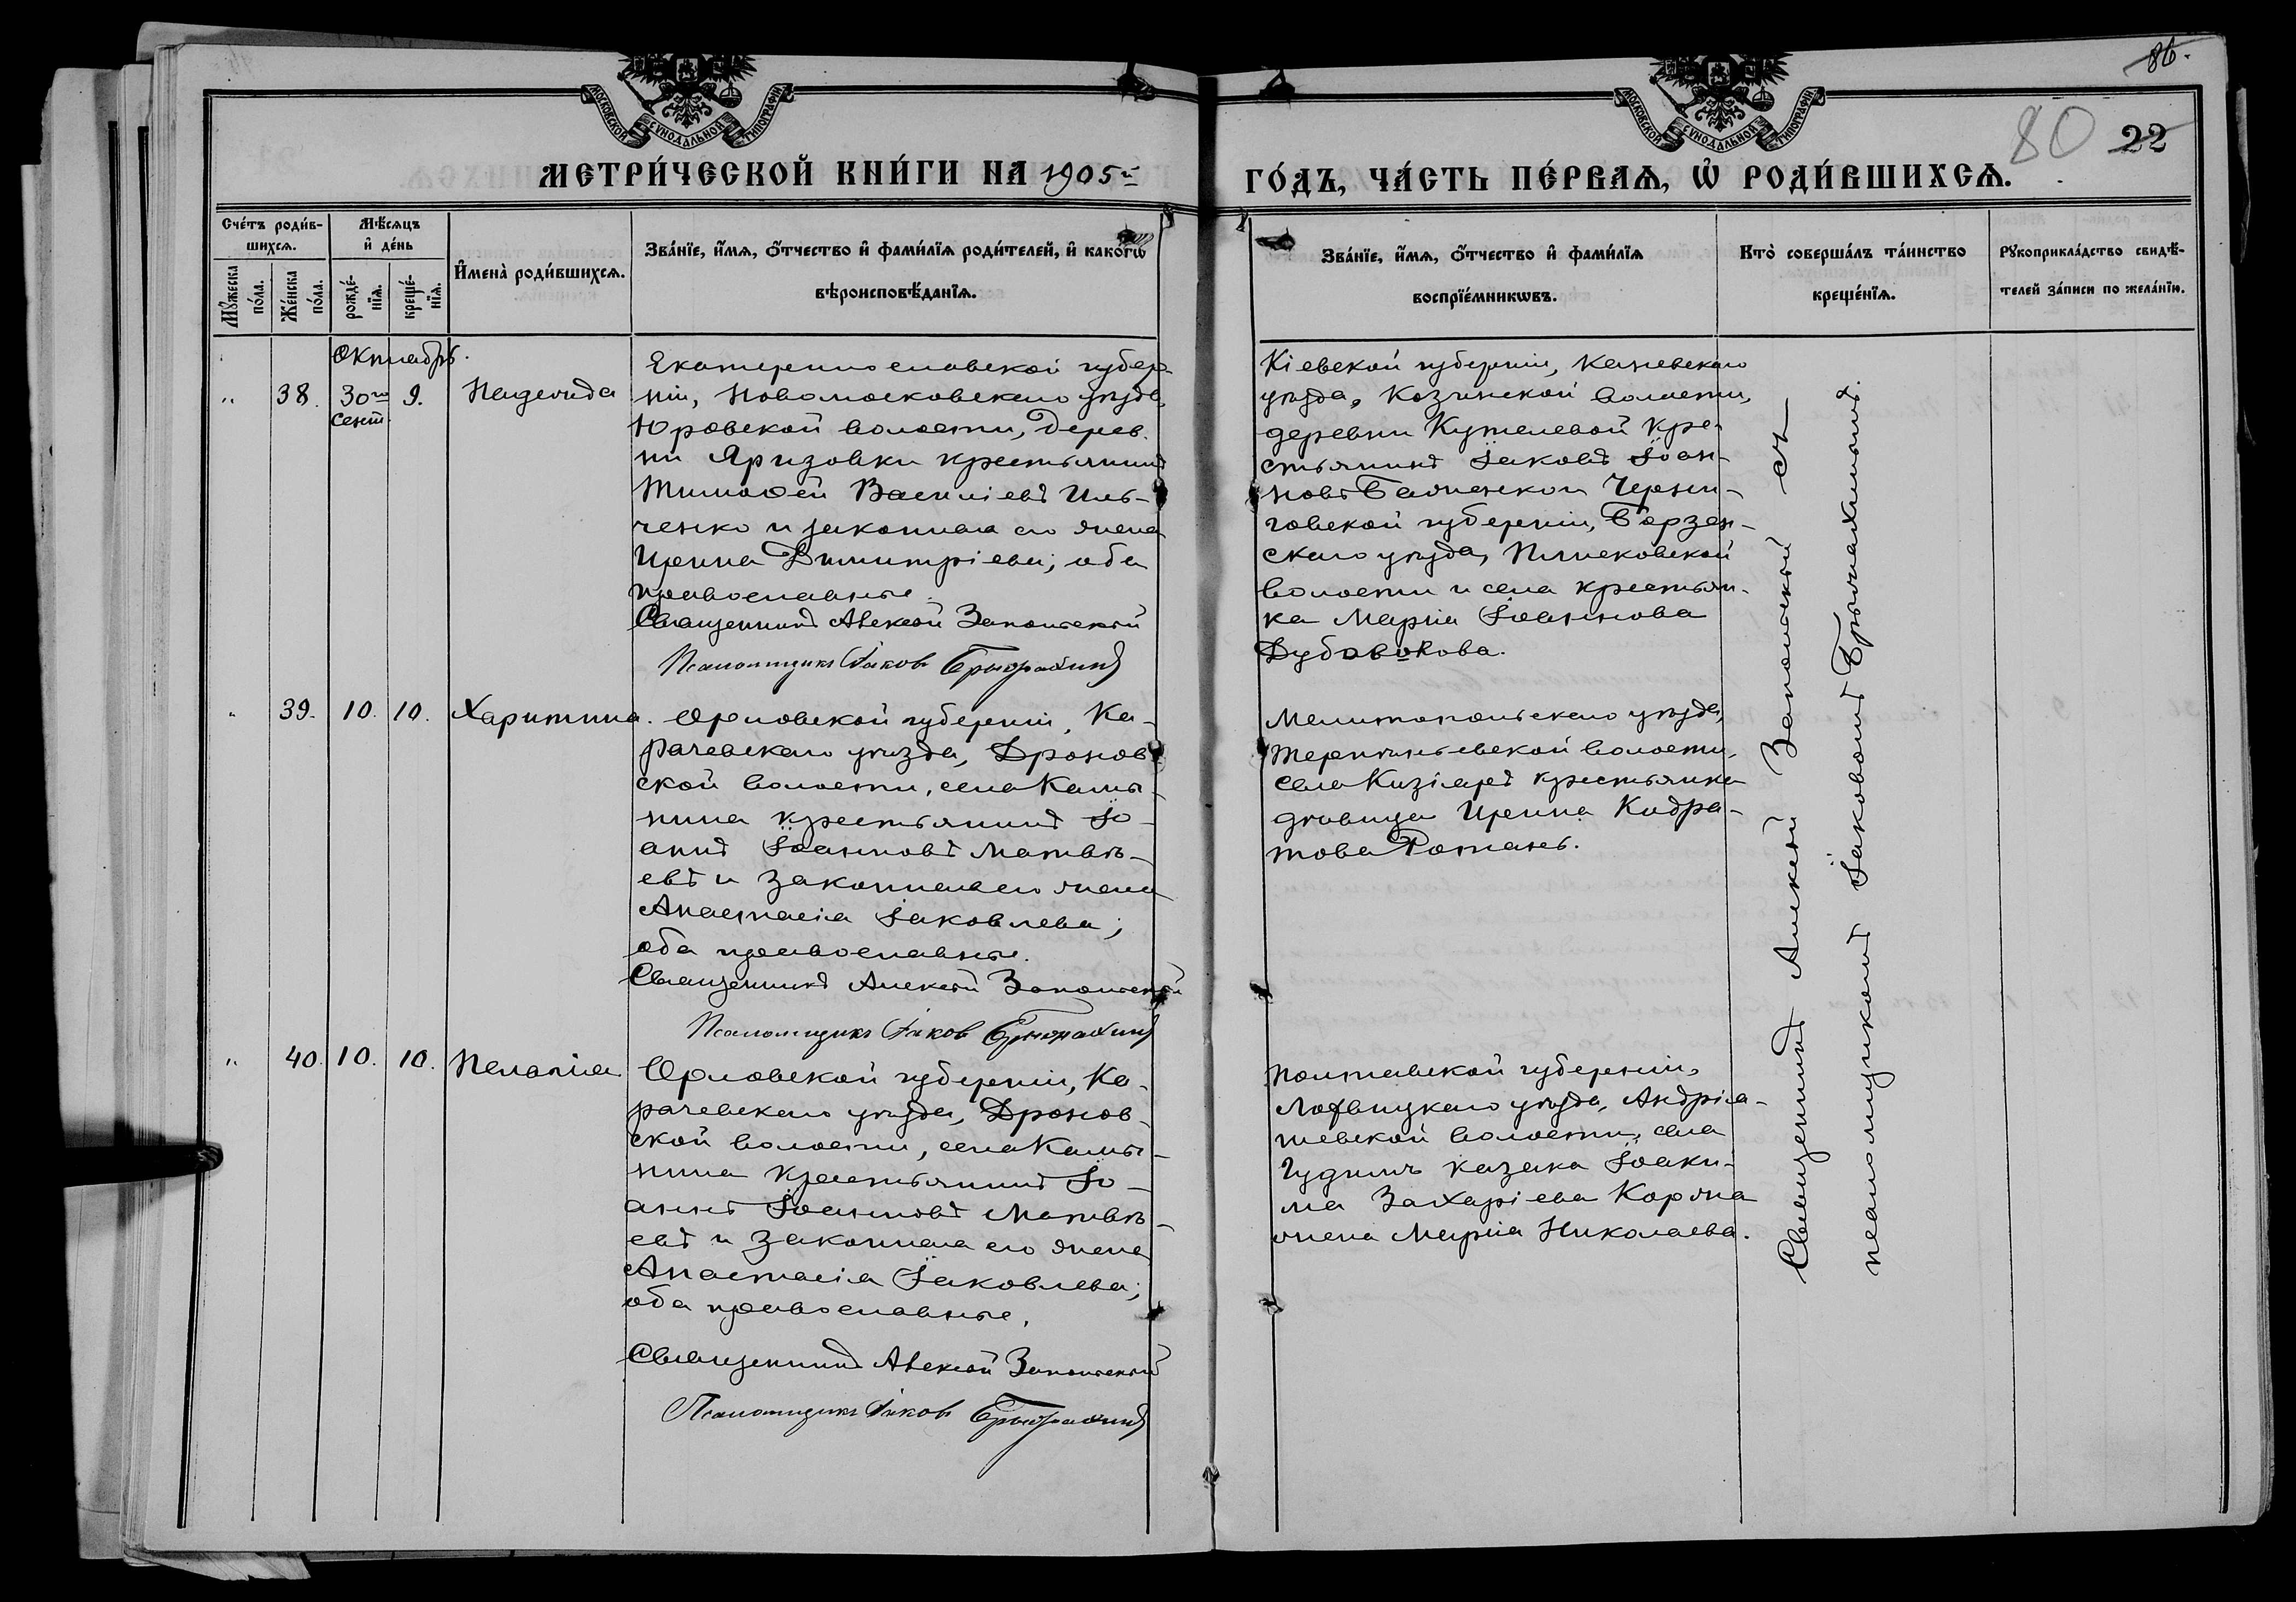 86.
80 22
МОСКОВСКОЙ СѴНОДАЛЬНОЙ ТИПОГРАФІИ
МОСКОВСКОЙ СѴНОДАЛЬНОЙ ТИПОГРАФІИ
МЕТРИ́ЧЕСКОЙ КНИ́ГИ НА 1905й
ГО́ДЪ, ЧА́СТЬ ПЕ́РВАѦ, Ѽ РОДИ́ВШИХСѦ.
Сче́тъ роди́в-
шихсѧ.
Мꙋ́жеска по́ла.
Же́нска по́ла.
Мѣ́сѧцъ
и҆ де́нь
рожде́-
нїѧ.
креще́-
нїѧ.
И҆мена̀ роди́вшихсѧ.
Зва́нїе, и҆́мѧ, ѻ҆́тчество и҆ фами́лїѧ роди́телей, и҆ како́гѡ
вѣроисповѣ́данїѧ.
Зва́нїе, и҆́мѧ, ѻ҆́тчество и҆ фами́лїѧ
воспрїе́мникѡвъ.
Кто̀ соверша́лъ та́инство
креще́нїѧ.
Рꙋкоприкла́дство свидѣ́-
телей за́писи по жела́нїю.
Октябрь.
" 38. 30го сент. 9. Надежда
Екатеринославской губер-
ніи, Новомосковскаго уѣзда,
Юровской волости, дерев-
ни Яризовки крестьянинъ
Тимоѳей Василіевъ Иль-
ченко и законная его жена
Ирина Димитріева; оба
православные.
Священникъ Алексій Запольскій
Псаломщикъ Іаковъ
Кіевской губерніи, Каневскаго
уѣзда, Козинской волости,
деревни Кутелевой кре-
стьянинъ Іаковъ Іоан-
новъ Черни-
говской губерніи, Борзен-
скаго уѣзда, Плисковской
волости и села крестьян-
ка Марія Іоаннова
Дубовикова.
" 39. 10. 10. Харитина.
Орловской губерніи, Ка-
рачевскаго уѣзда, Дронов-
ской волости, села Калы-
нина крестьянинъ Іо-
аннъ Іоанновъ Матвѣ-
евъ и законная его жена
Анастасія Іаковлева;
оба православные.
Священникъ Алексій Запольскій
Псаломщикъ Іаковъ
Мелитопольскаго уѣзда,
Терпѣньевской волости,
села Кизіяръ крестьянка
дѣвица Ирина Кодра-
това Ротань.
" 40. 10. 10. Пелагія
Орловской губерніи, Ка-
рачевскаго уѣзда, Дронов-
ской волости, села Калы-
нина крестьянинъ Іо-
аннъ Іоанновъ Матвѣ-
евъ и законная его жена
Анастасія Іаковлева;
оба православные.
Священникъ Алексій Запольскій
Псаломщикъ Іаковъ
Полтавской губерніи,
Лохвицкаго уѣзда, Андрія-
шевской волости, села
Гудимъ казака Іоаки-
ма Захаріева Коржа
жена Марія Николаева.
Священникъ Алексій Запольскій съ
псаломщикомъ Іаковомъ